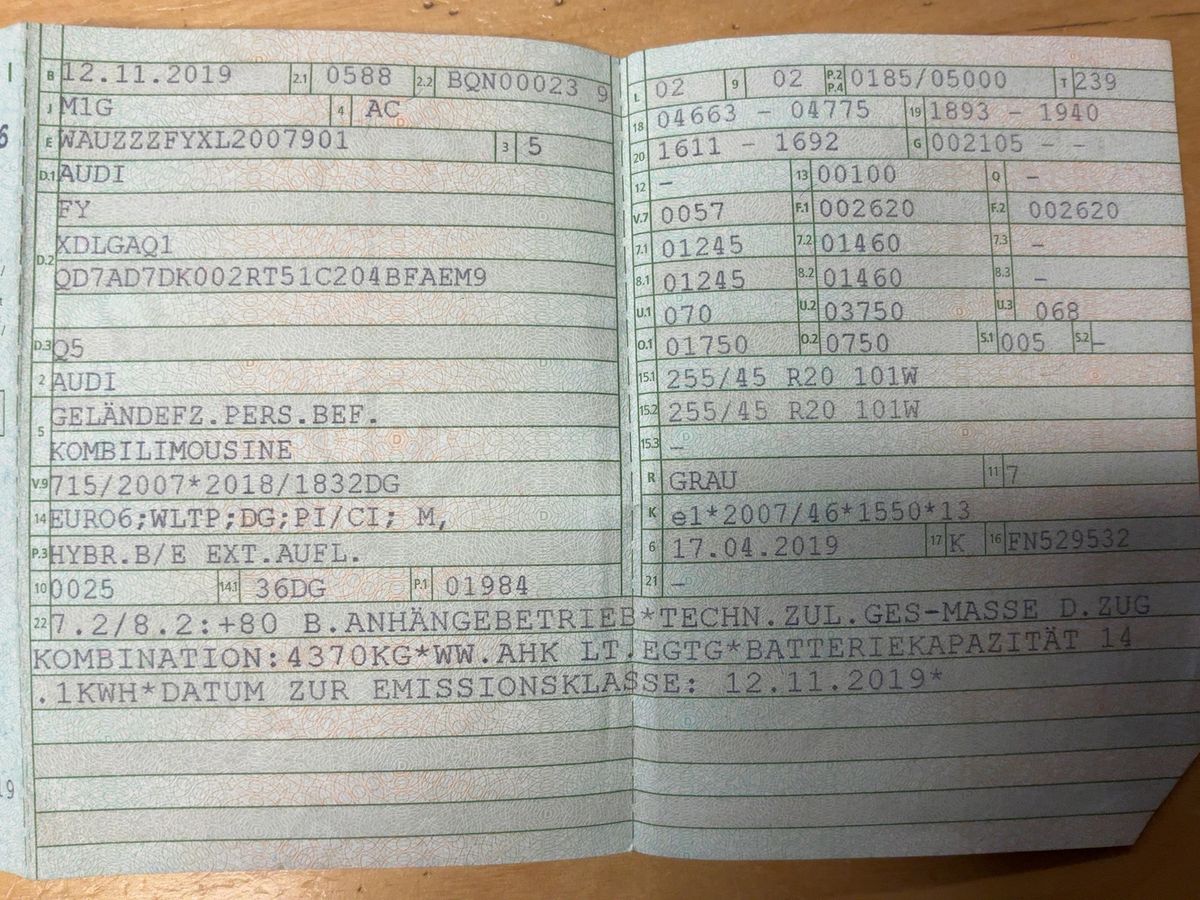 B 12.11.2019 2.1 0588 2.2 BQN00023 9
J M1G 4 AC
E WAUZZZFYXL2007901 3 5
D.1 AUDI
FY
D.2 XDLGAQ1
QD7AD7DK002RT51C204BFAEM9
D.3 Q5
2 AUDI
5 GELÄNDEFZ.PERS.BEF.
KOMBILIMOUSINE
V.9 715/2007*2018/1832DG
14 EURO6;WLTP;DG;PI/CI; M,
P.3 HYBR.B/E EXT.AUFL.
10 0025 14.1 36DG P.1 01984
L 02 9 02 P.2 P.4 0185/05000 T 239
18 04663 - 04775 19 1893 - 1940
20 1611 - 1692 G 002105 - -
12 - 13 00100 Q -
V.7 0057 F.1 002620 F.2 002620
7.1 01245 7.2 01460 7.3 -
8.1 01245 8.2 01460 8.3 -
U.1 070 U.2 03750 U.3 068
O.1 01750 O.2 0750 S.1 005 S.2 -
15.1 255/45 R20 101W
15.2 255/45 R20 101W
15.3 -
R GRAU 11 7
K e1*2007/46*1550*13
6 17.04.2019 17 K 16 FN529532
21 -
22 7.2/8.2:+80 B.ANHÄNGEBETRIEB*TECHN.ZUL.GES-MASSE D.ZUG
KOMBINATION:4370KG*WW.AHK LT.EGTG*BATTERIEKAPAZITÄT 14
.1KWH*DATUM ZUR EMISSIONSKLASSE: 12.11.2019*